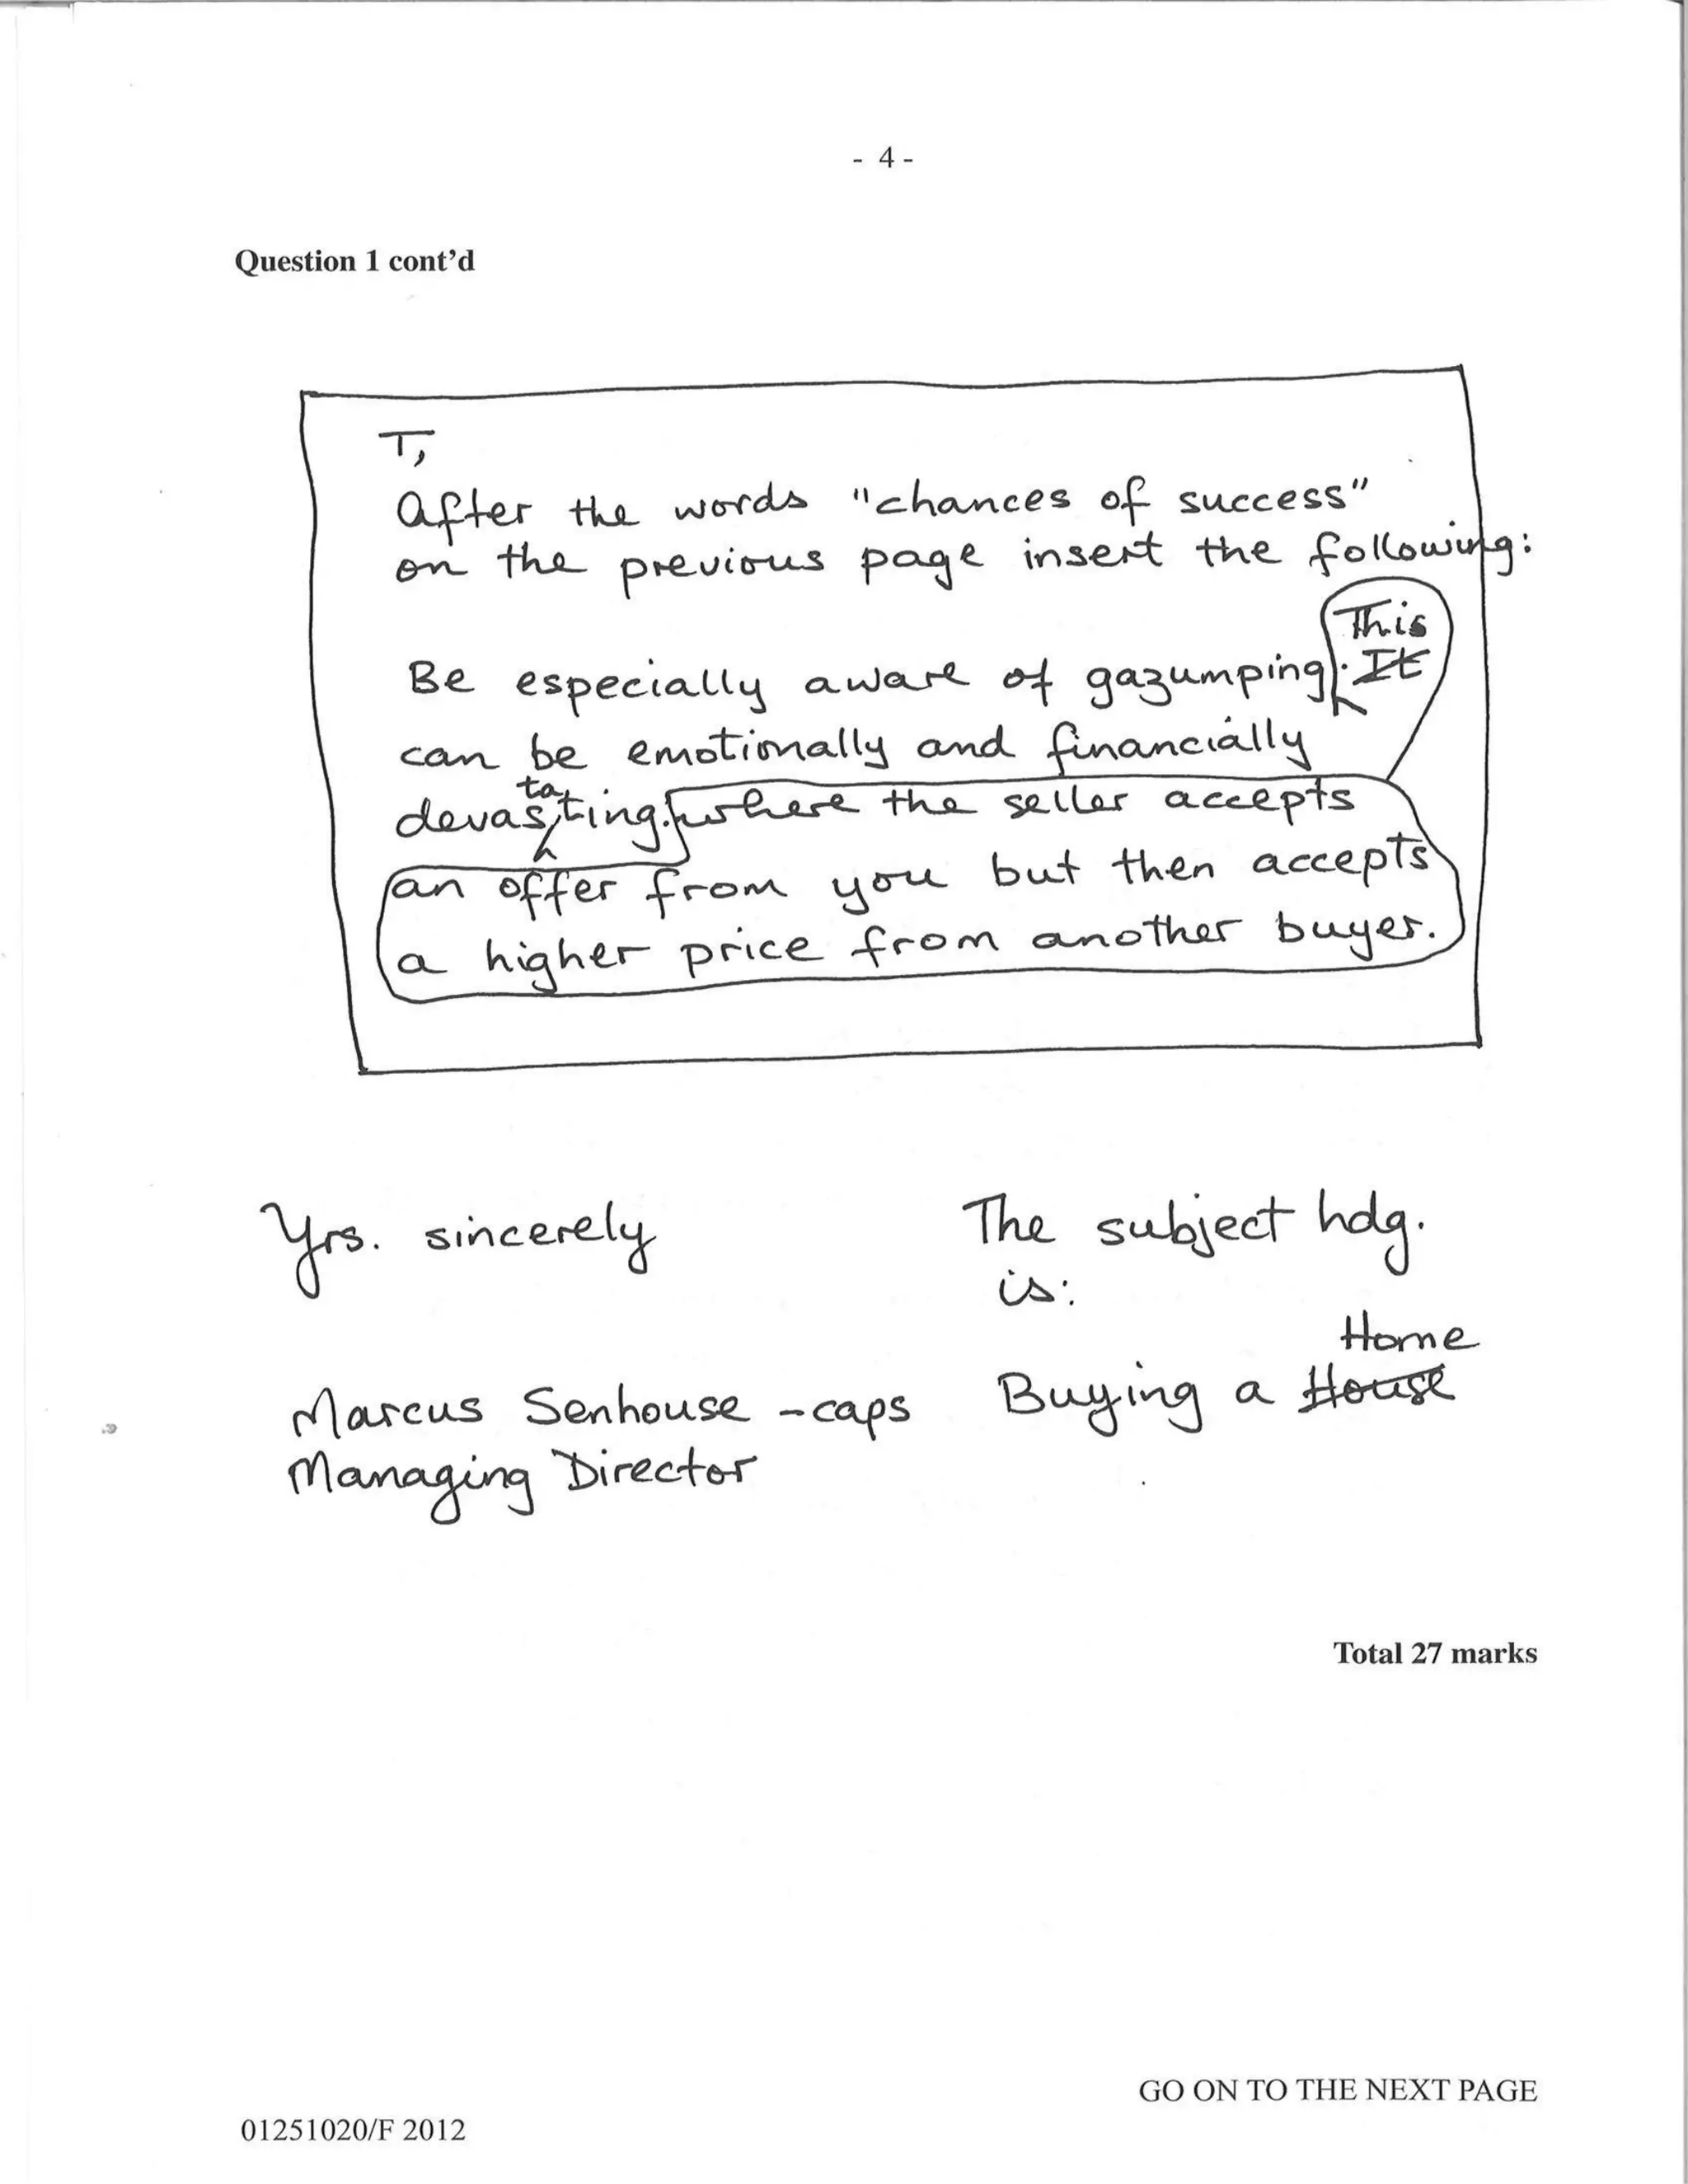 - 4 -
Question 1 cont’d
T,
After the words "chances of success"
on the previous page insert the following:
This
Be especially aware of gazumping. It
can be emotionally and financially
ta
devasting. where the seller accepts
an offer from you but then accepts
a higher price from another buyer.
Yrs. sincerely
The subject hdg.
is:
Home
Marcus Senhouse - caps
Buying a House
Managing Director
Total 27 marks
GO ON TO THE NEXT PAGE
01251020/F 2012